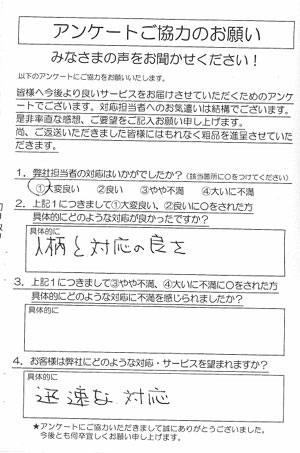 アンケートご協力のお願い
みなさまの声をお聞かせください！
以下のアンケートにご協力をお願いいたします。
皆様へ今後より良いサービスをお届けさせていただくためのアンケ
ートでございます。対応担当者へのお気遣いは結構でございます。
是非率直な感想、ご要望をご記入お願い申し上げます。
尚、ご返送いただきました皆様にはもれなく粗品を進呈させていた
だきます。
1．弊社担当者の対応はいかがでしたか？（該当箇所に○をつけてください）
①大変良い　②良い　③やや不満　④大いに不満
2．上記１につきまして①大変良い、②良いに○をされた方
具体的にどのような対応が良かったですか？
具体的に
人柄と対応の良さ
3．上記１につきまして③やや不満、④大いに不満に○をされた方
具体的にどのような対応に不満を感じられましたか？
具体的に
4．お客様は弊社にどのような対応・サービスを望まれますか？
具体的に
迅速な対応
★アンケートにご協力いただきまして誠にありがとうございました。
今後とも何卒宜しくお願い申し上げます。